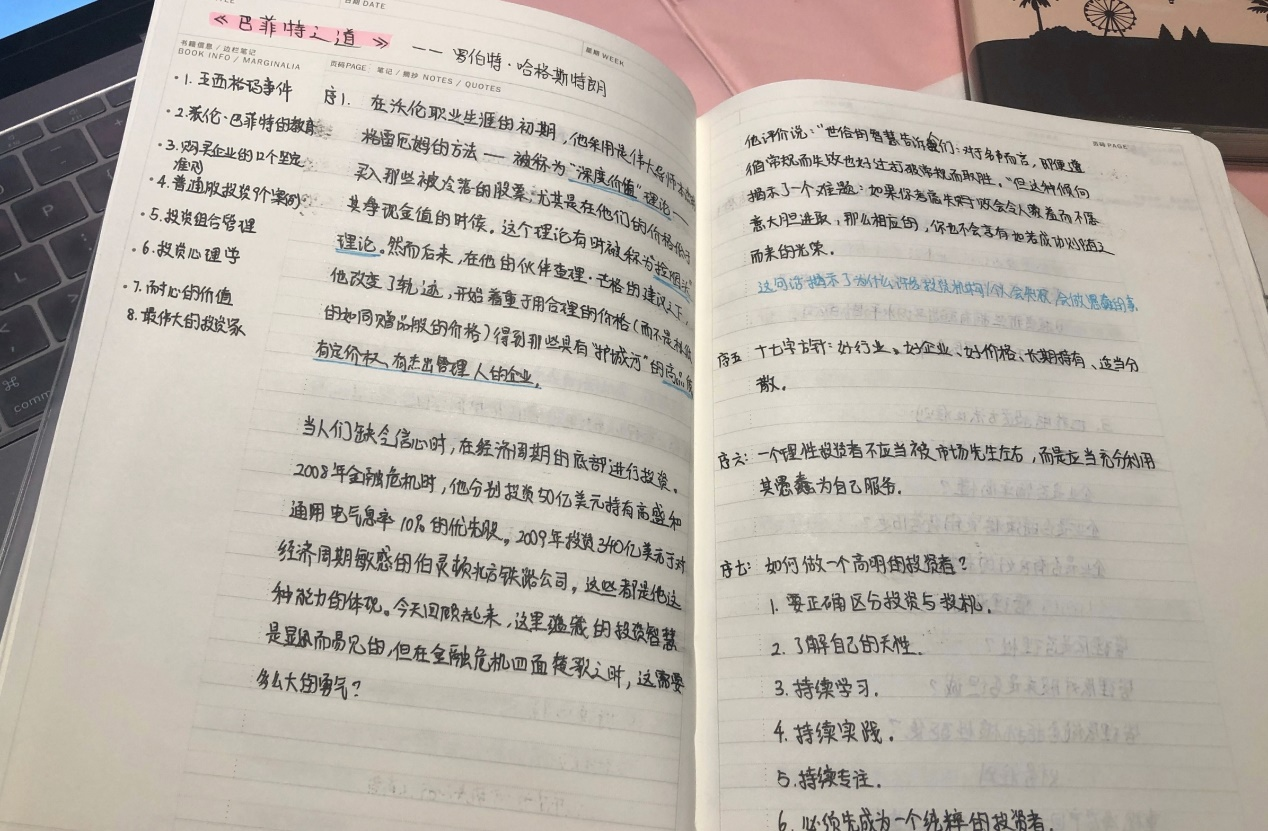 日期 DATE
《巴菲特之道》 —— 罗伯特·哈格斯特朗
星期 WEEK
书籍信息 / 边栏笔记
BOOK INFO / MARGINALIA
页码PAGE 笔记 / 摘抄 NOTES / QUOTES
·1. 五西格玛事件
·2. 沃伦·巴菲特的教育
·3. 购买企业的12个坚定
准则
·4. 普通股投资9个案例
·5. 投资组合管理
·6. 投资心理学
·7. 耐心的价值
8. 最伟大的投资家
序1. 在沃伦职业生涯的初期，他采用是伟大导师本杰明
格雷厄姆的方法 —— 被称为“深度价值”理论 ——
买入那些被冷落的股票，尤其是在他们的价格低于
其净现金值的时候。这个理论有时被称为捡烟头
理论。然而后来，在他的伙伴查理·芒格的建议之下，
他改变了轨迹，开始着重于用合理的价格（而不是
的如同赠品般的价格）得到那些具有“护城河”的
有定价权、有杰出管理人的企业。
当人们缺乏信心时，在经济周期的底部进行投资。
2008年金融危机时，他分别投资50亿美元持有高盛和
通用电气息率10%的优先股。2009年投资340亿美元于对
经济周期敏感的伯灵顿北方铁路公司，这些都是他这
种能力的体现。今天回顾起来，这里蕴藏的投资智慧
是显而易见的，但在金融危机四面楚歌之时，这需要
多么大的勇气？
页码 PAGE
他评价说：“世俗的智慧告诉我们：对名声而言，即便遵
循常规而失败也好过打破常规而取胜。”但这种倾向
揭示了一个难题：如果你考虑失败会令人羞而不愿
意大胆进取，那么相应的，你也不会享有如若成功以随之
而来的光荣。
这句话揭示了为什么许多投资机构/个人会失败 会做愚蠢的事
序五 十七字方针：好行业、好企业、好价格、长期持有、适当分
散。
序六：一个理性投资者不应当被市场先生左右，而是应当充分利用
其愚蠢为自己服务。
序七：如何做一个高明的投资者？
1. 要正确区分投资与投机。
2. 了解自己的天性。
3. 持续学习。
4. 持续实践。
5. 持续专注。
6. 必须先成为一个纯粹的投资者。